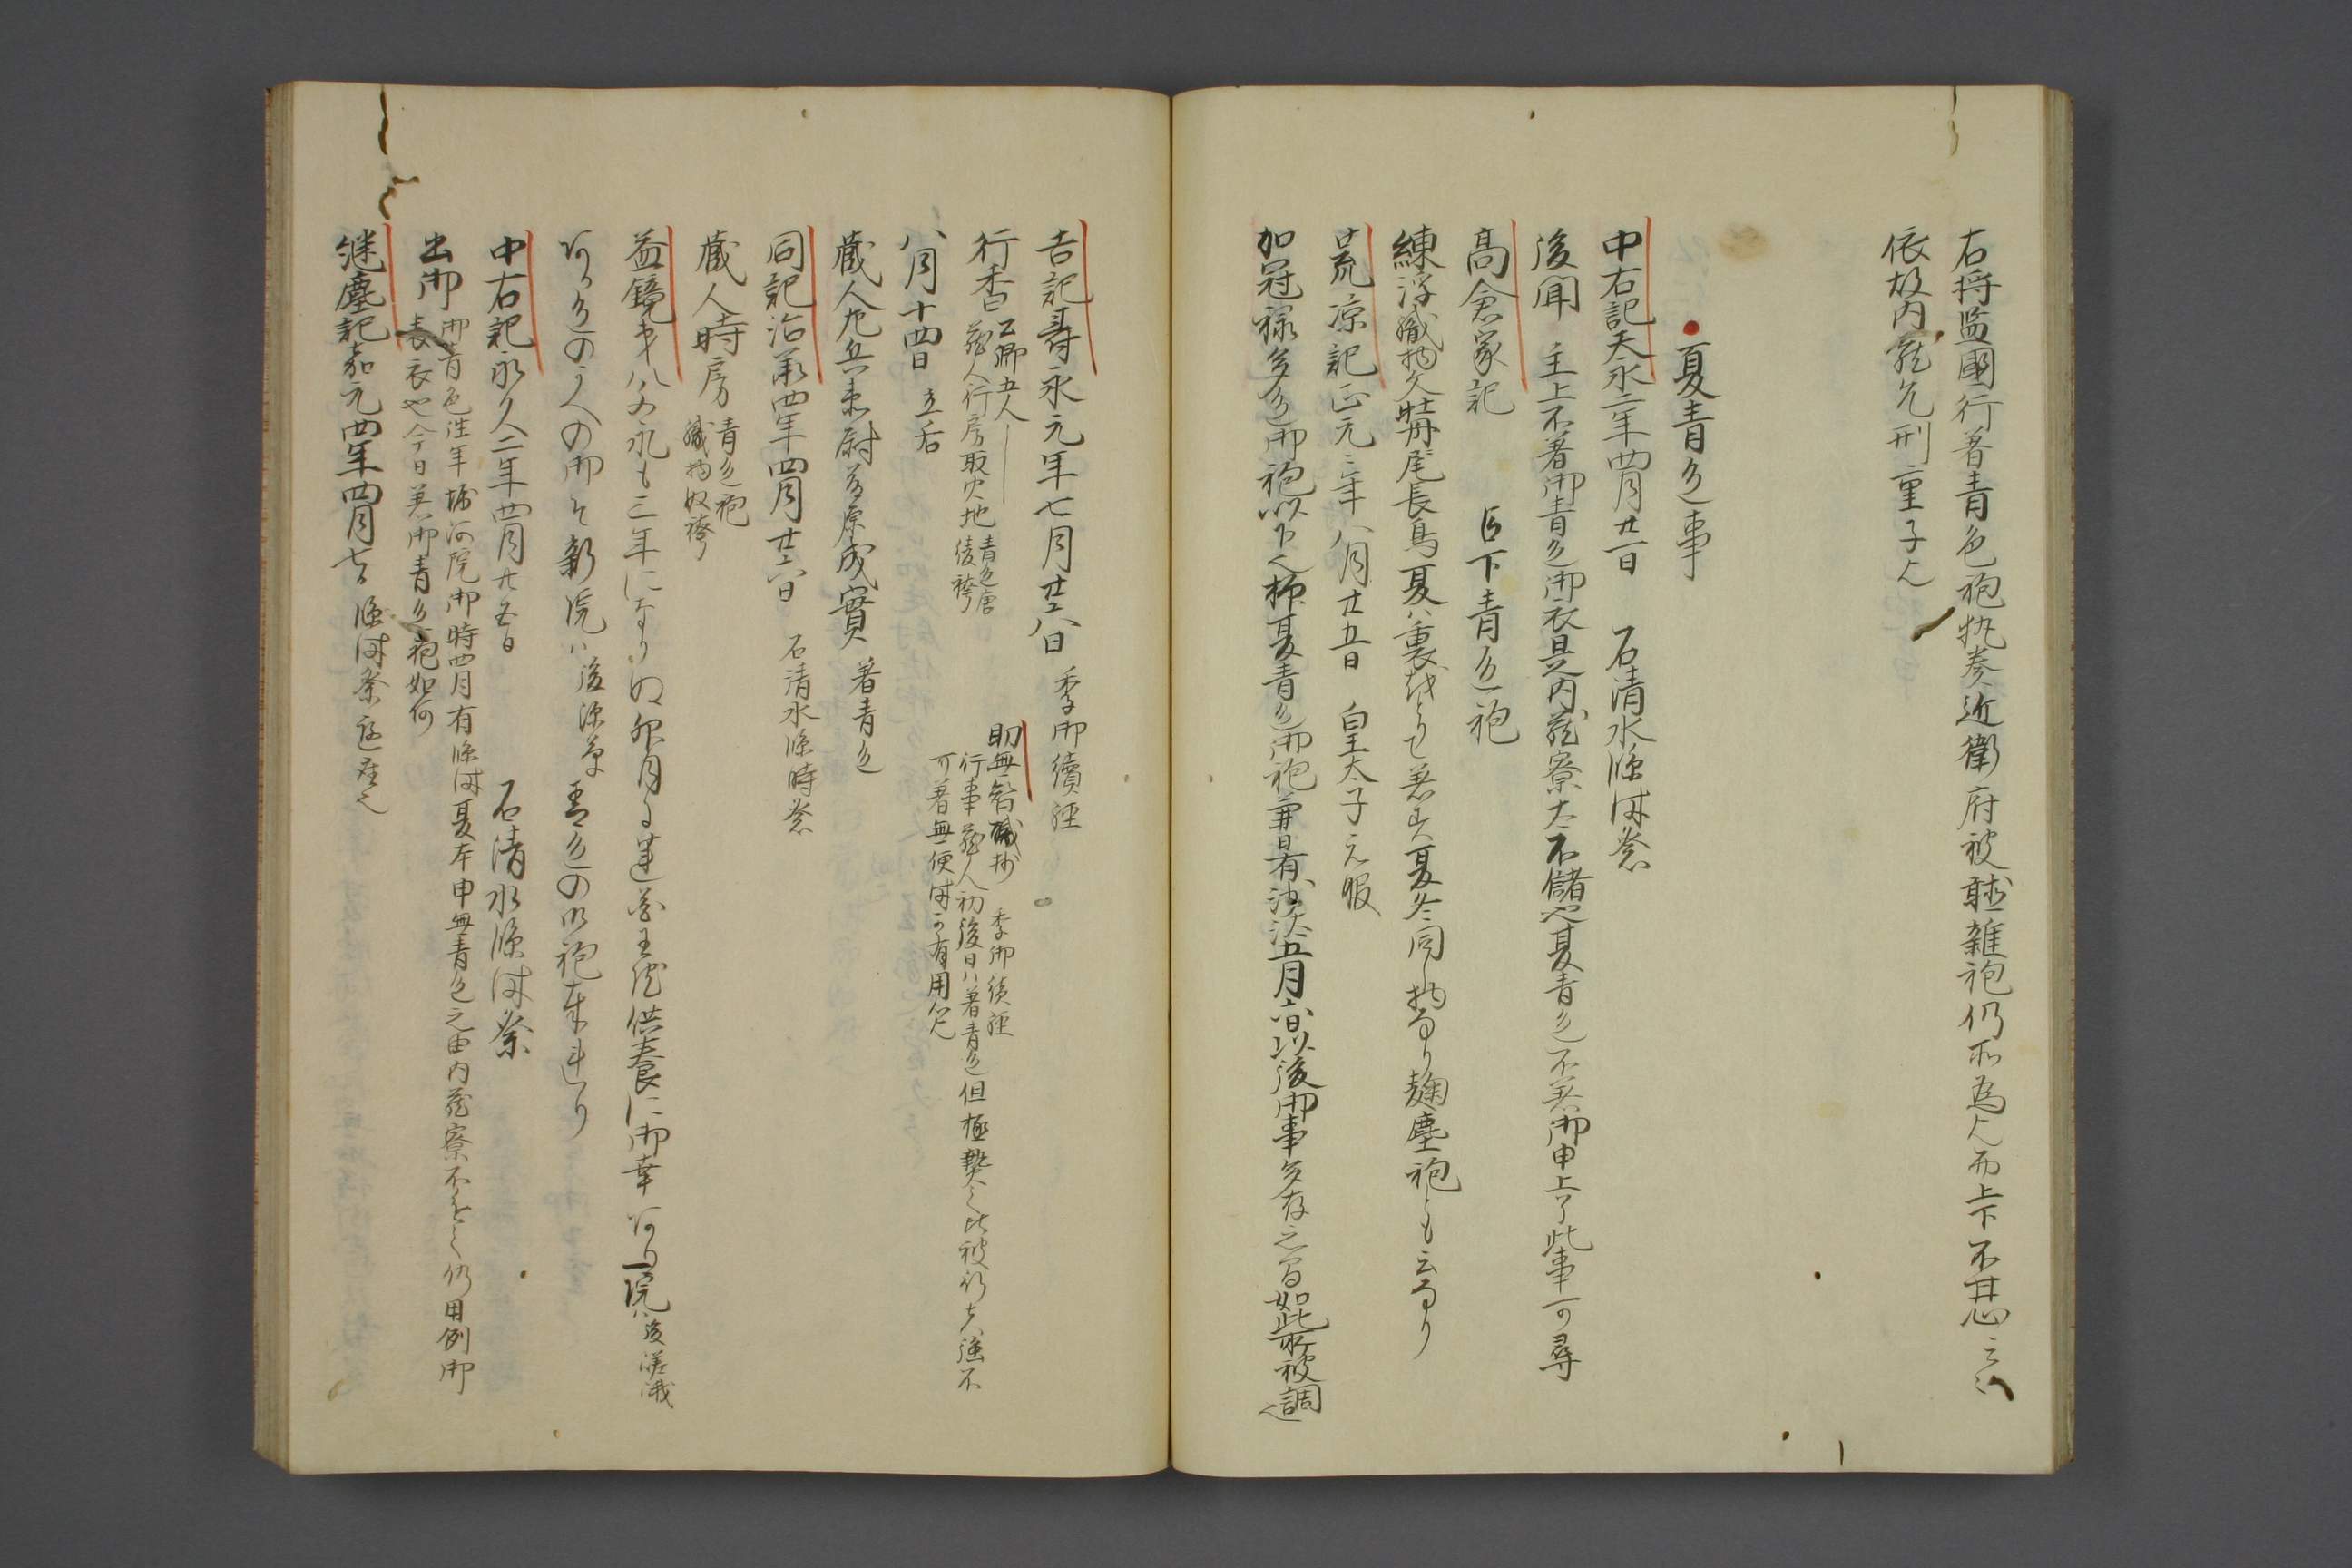 右将監国行著青色袍執奏近衛府被雑袍仍所為上下不甚云々
依故内蔵允刑重子也
夏青色事
中右記天永二年四月廿一日 石清水臨時祭
後聞 主上不著御青色御衣是内蔵寮太不儲也夏青色不着御申上了此事可尋
高倉家記 臣下青色袍
練浮織物文牡丹尾長鳥夏ハ裏をとりて着ス夏冬同し物なり麹塵袍とも云なり
荒凉記正元二年八月廿五日 皇太子元服
加冠禄 青色御袍 夏青色御袍兼日有沙汰五月六日以後御事多存之間如此所被調也
吉記寿永元年七月廿八日 季御読経
行香 公卿五人 蔵人行房取火地 青色唐綾袴
助無智秘抄 季御読経
行事蔵人初後日ハ著青色但極熱之比被行者強不
可著無便時可有用心
八月十四日 立后
蔵人左兵衛尉藤原成実 著青色
同記治承四年四月廿六日 石清水臨時祭
蔵人時房 青色袍 織物奴袴
益鏡第八 文永も三年になりぬ卯月に蓮花王院供養に御幸 院ハ後嵯峨
色の御そ新院ハ後深草 青色の御袍奉れり
中右記永久二年四月廿五日 石清水臨時祭
出御 御青色往年堀河院御時四月有臨時夏本申無青色之由内蔵寮不 仍用例御
表衣也今日着御青色袍如何
継塵記嘉元四年四月七日 臨時祭庭座也